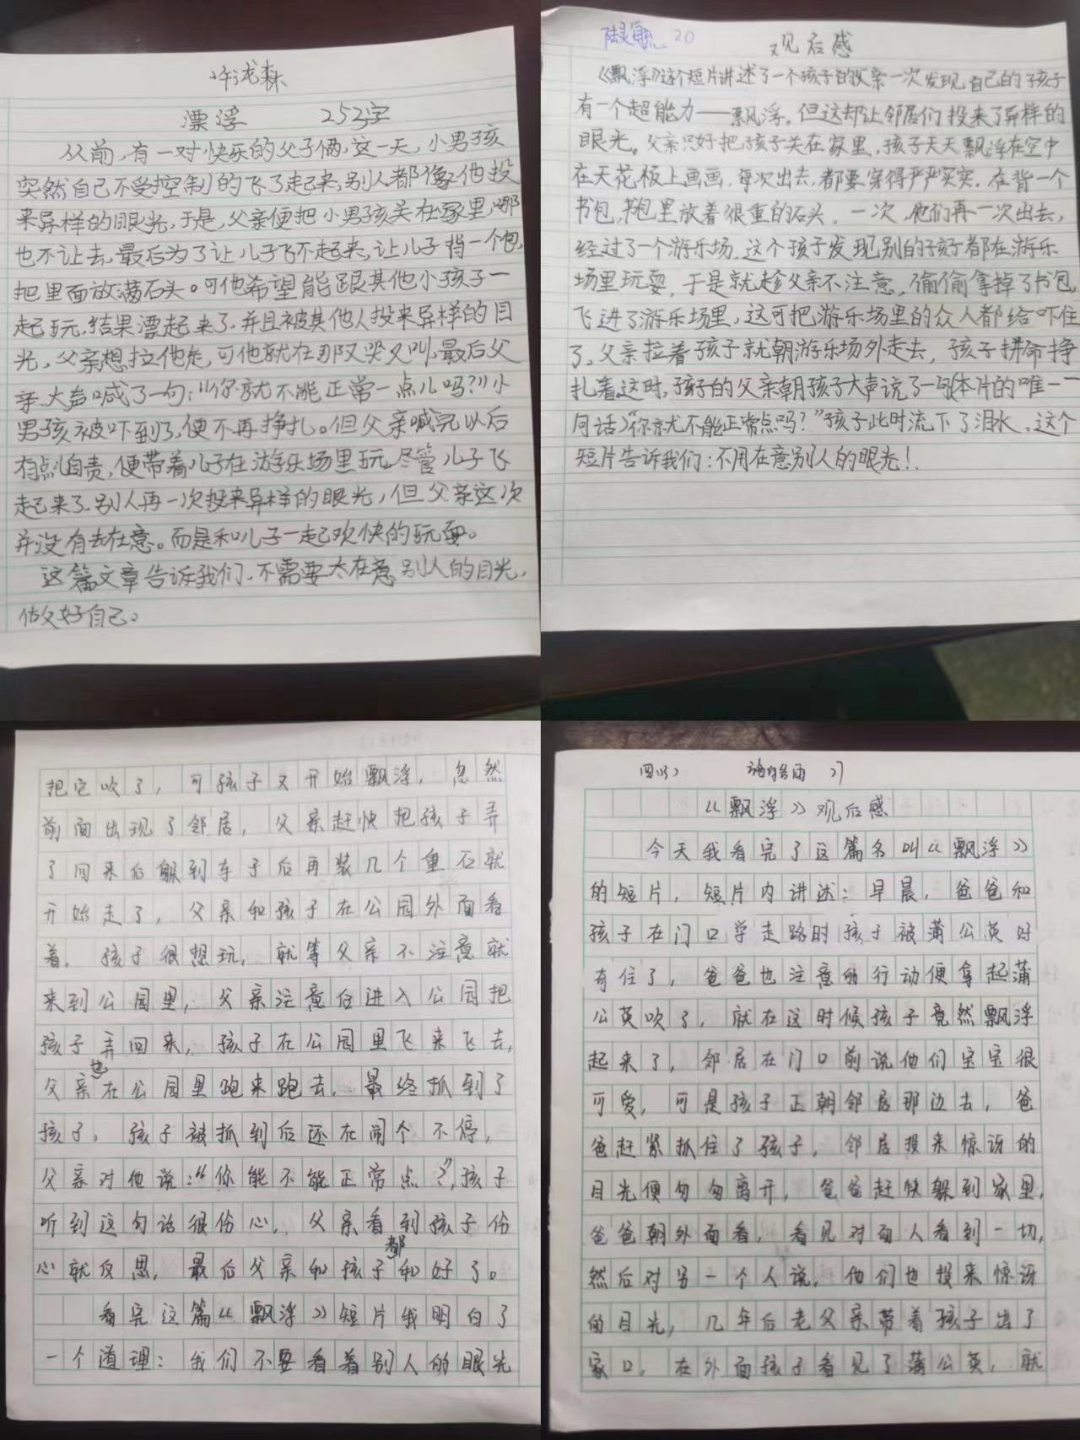 许泷森
漂浮 253字
从前,有一对快乐的父子俩,这一天,小男孩
突然自己不受控制的飞了起来,别人都像他投
来异样的眼光,于是,父亲便把小男孩关在家里,哪
也不让去,最后为了让儿子飞不起来,让儿子背一个包,
把里面放满石头。可他希望能跟其他小孩子一
起玩,结果漂起来了,并且被其他人投来异样的目
光,父亲想拉他走,可他就在那又哭又叫,最后父
亲大声喊了一句:“你就不能正常一点儿吗?”小
男孩被吓到了,便不再挣扎。但父亲喊完以后
有点儿自责,便带着儿子在游乐场里玩,尽管儿子飞
起来了,别人再一次投来异样的眼光,但父亲这次
并没有去在意。而是和儿子一起欢快的玩耍。
这篇文章告诉我们,不需要太在意别人的目光,
做好自己。
20
观后感
《飘浮》这个短片讲述了一个孩子的父亲一次发现自己的孩子
有一个超能力——飘浮。但这却让邻居们投来了异样的
眼光。父亲只好把孩子关在家里,孩子天天飘浮在空中
在天花板上画画,每次出去,都要穿得严严实实,在背一个
书包,书包里放着很重的石头,一次,他们再一次出去,
经过了一个游乐场,这个孩子发现别的孩子都在游乐
场里玩耍,于是就趁父亲不注意,偷偷拿掉了书包,
飞进了游乐场里,这可把游乐场里的众人都给吓住
了。父亲拉着孩子就朝游乐场外走去,孩子拼命挣
扎着,这时,孩子的父亲朝孩子大声说了一句(本片的唯一一
句话)“你就不能正常点吗?”孩子此时流下了泪水,这个
短片告诉我们:不用在意别人的眼光!
把它吹了,可孩子又开始飘浮,忽然
前面出现了邻居,父亲赶快把孩子弄
了回来后躲到车子后再装几个重石就
开始走了,父亲和孩子在公园外面看
着,孩子很想玩,就等父亲不注意就
来到公园里,父亲注意后进入公园把
孩子弄回来,孩子在公园里飞来飞去,
父亲也在公园里跑来跑去,最终抓到了
孩子,孩子被抓到后还在闹个不停,
父亲对他说:“你能不能正常点?”,孩子
听到这句话很伤心,父亲看到孩子伤
心就反思,最后父亲和孩子都和好了。
看完这篇《飘浮》短片我明白了
一个道理:我们不要看着别人的眼光
27
《飘浮》观后感
今天我看完了这篇名叫《飘浮》
的短片,短片内讲述:早晨,爸爸和
孩子在门口学走路时孩子被蒲公英吋
有住了,爸爸也注意的行动便拿起蒲
公英吹了,就在这时候孩子竟然飘浮
起来了,邻居在门口前说他们宝宝很
可爱,可是孩子正朝邻居那边去,爸
爸赶紧抓住了孩子,邻居投来惊讶的
目光便匆匆离开,爸爸赶快躲到家里,
爸爸朝外面看,看见对面人看到一切,
然后对另一个人说,他们也投来惊讶
的目光,几年后老父亲带着孩子出了
家口,在外面孩子看见了蒲公英,就